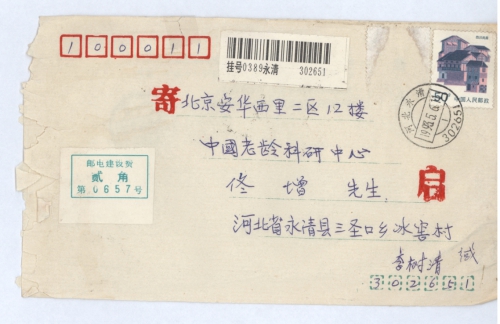 100011
挂号0389永清 302651
中国人民邮政
寄
北京安华西里二区12楼
中國老龄科研中心
佟增 先生
启
邮电建设费
贰角
第0657号
河北省永清县三圣口乡冰窖村
李树清 缄
302651